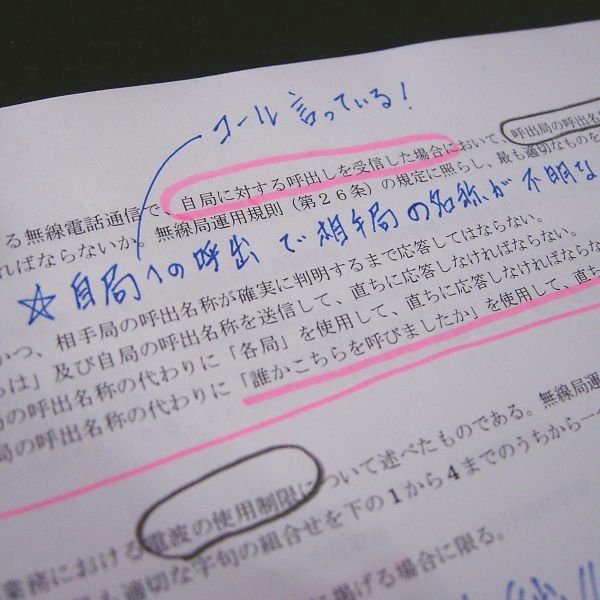 コール 言っている!
る無線電話通信で、自局に対する呼出しを受信した場合において、呼出局の呼出名
ればならないか。無線局運用規則(第26条)の規定に照らし、最も適切なものを
☆自局への呼出で相手局の名称が不明な
かつ、相手局の呼出名称が確実に判明するまで応答してはならない。
らは」及び自局の呼出名称を送信して、直ちに応答しなければならない。
の呼出名称の代わりに「各局」を使用して、直ちに応答しなければならな
局の呼出名称の代わりに「誰かこちらを呼びましたか」を使用して、直ち
業務における電波の使用制限について述べたものである。無線局運
も適切な字句の組合せを下の1から4までのうちから一
に掲げる場合に限る。